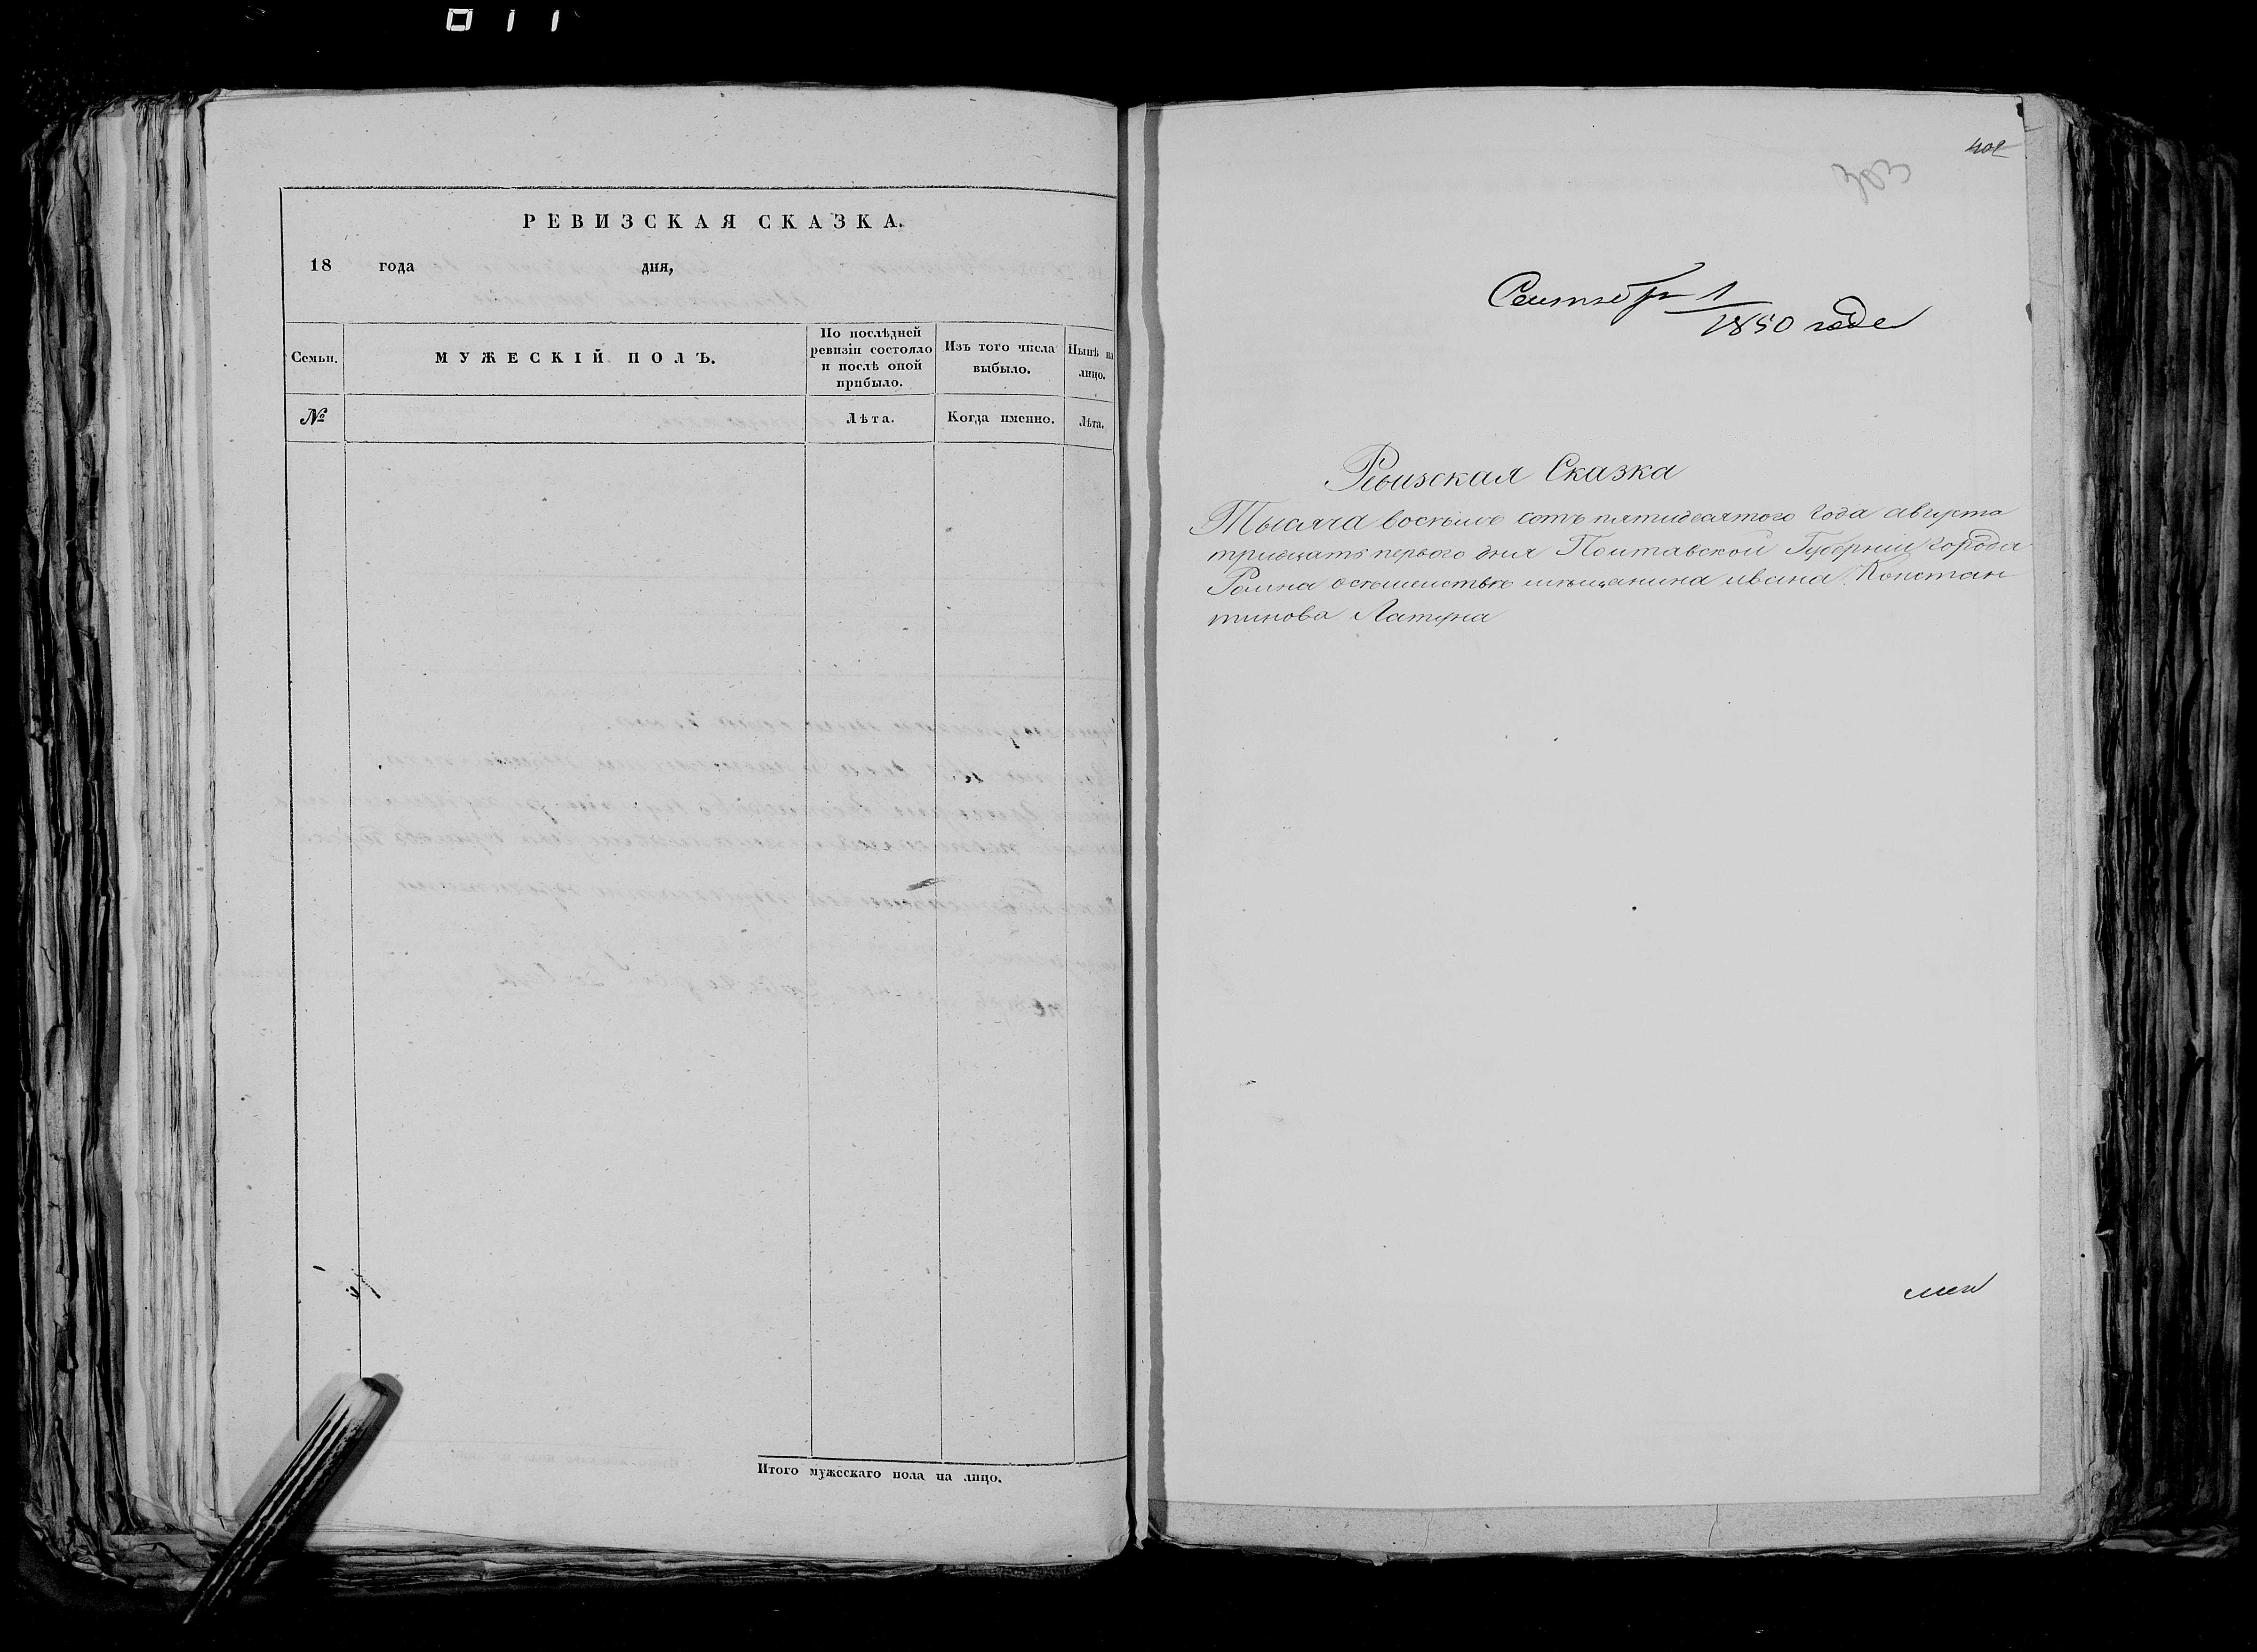 011
РЕВИЗСКАЯ СКАЗКА.
18 года дня,
Семьи.
МУЖЕСКІЙ ПОЛЪ.
По послѣдней ревизіи состояло и послѣ оной прибыло.
Изъ того числа выбыло.
Нынѣ на лицо.
№
Лѣта.
Когда именно.
Лѣта.
Итого мужескаго пола на лицо.
402
403
Сентября 1
1850 года
Ревизская Сказка
Тысяча восемь сотъ пятидесятого Года августа
тридцать первого дня Полтавской Губерніи города
Ромна о мещанина ивана Констан
тинова Латуна